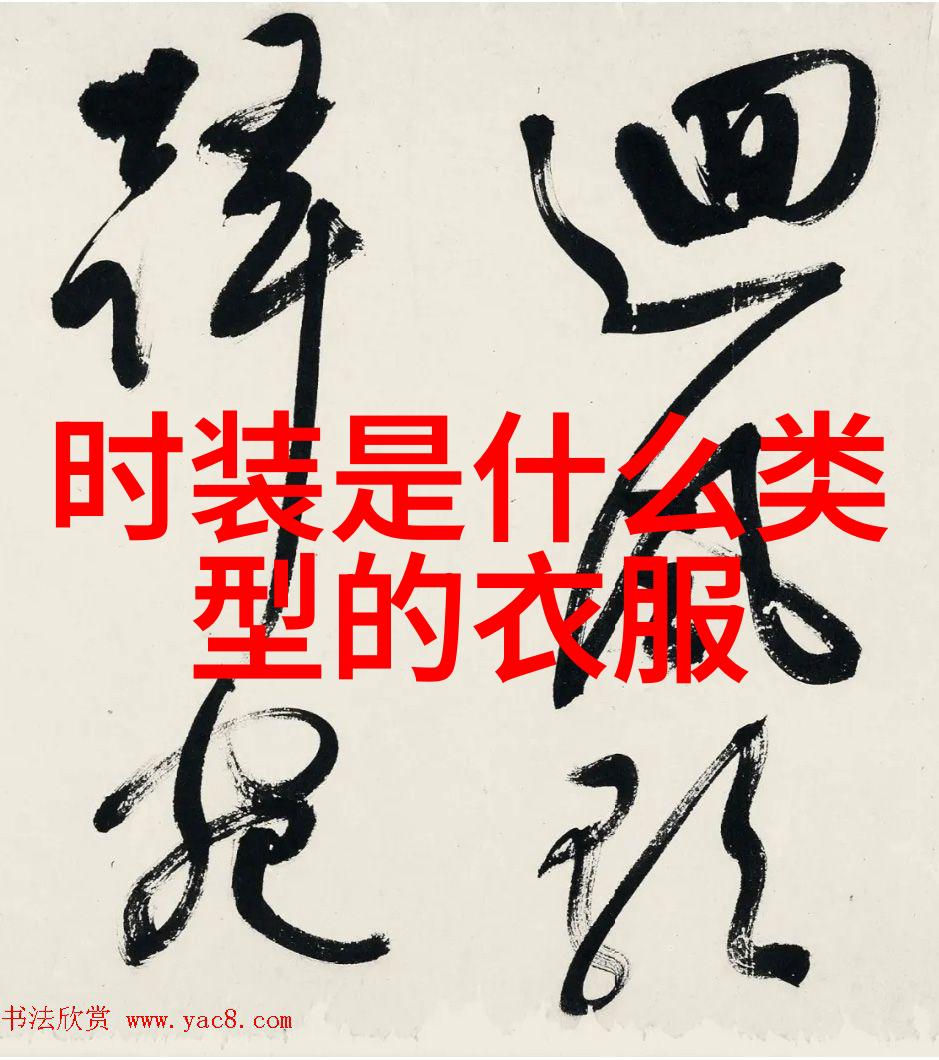 迴風
时装是什么类
型的衣服
书法欣赏 www.yac8.com